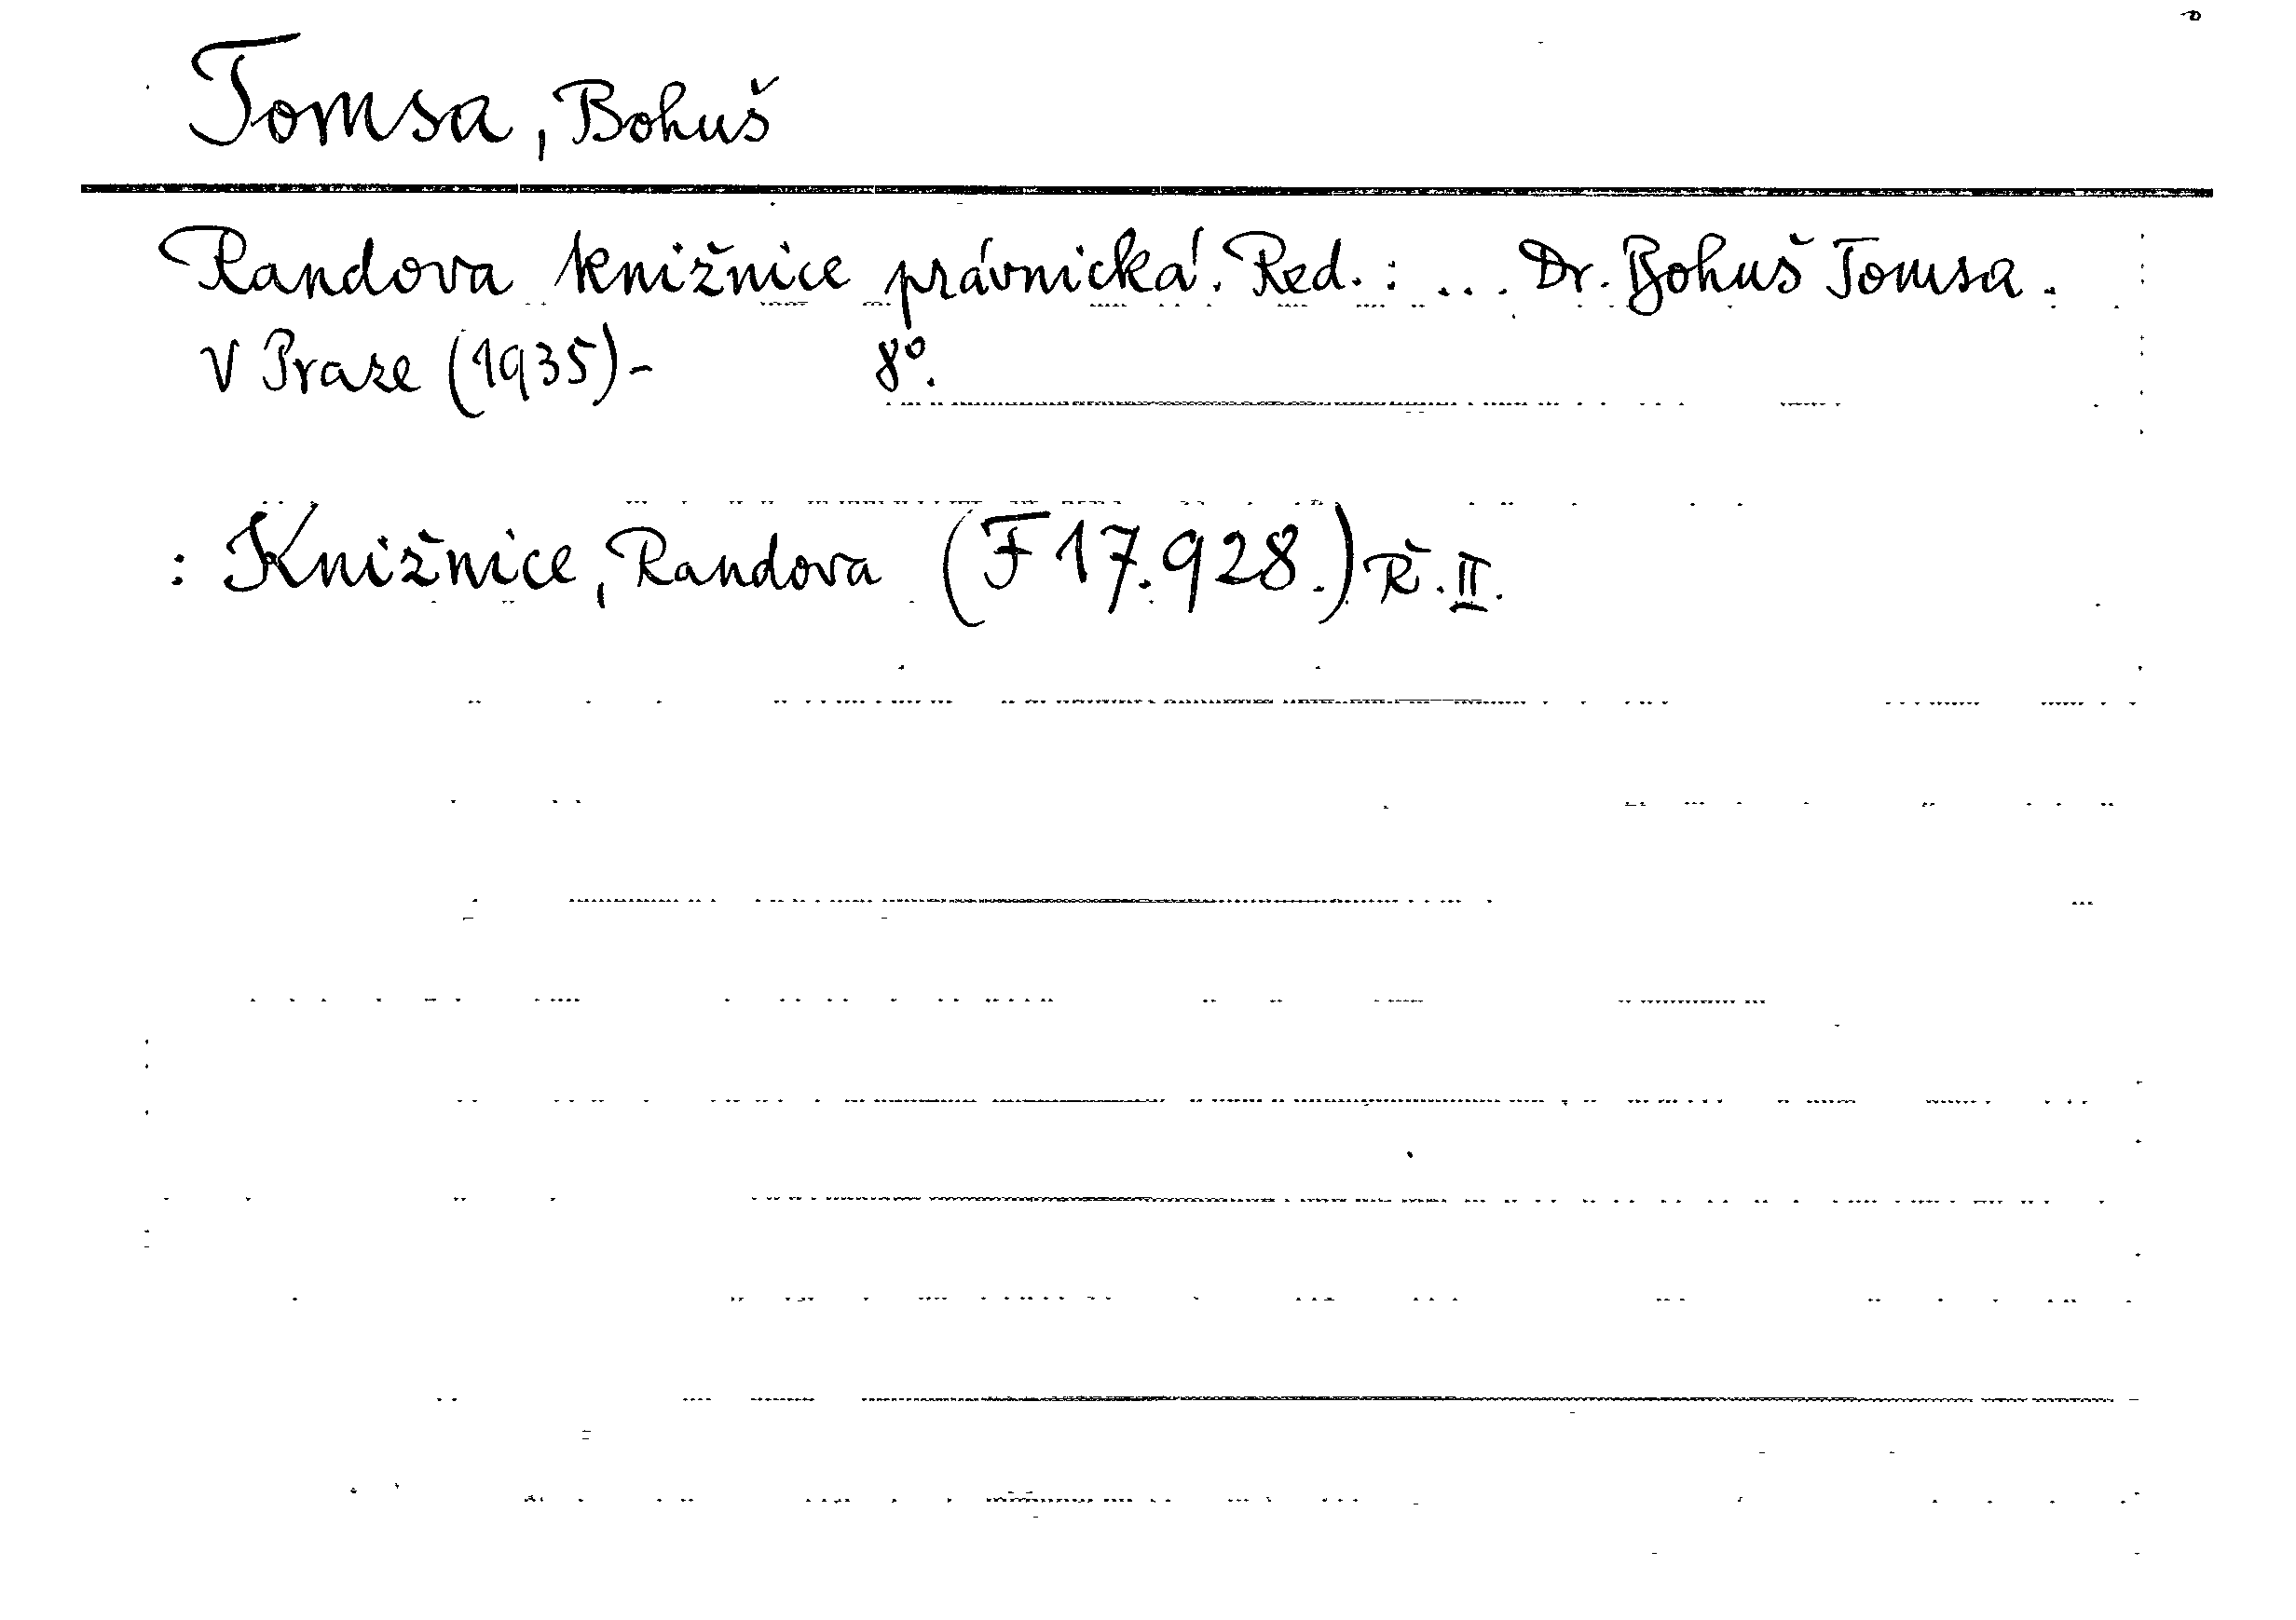 Tomsa, Bohuš
Randova knižnice právnická. Red.: ... Dr. Bohuš Tomsa.
V Praze (1935)- 8°.
: Knižnice, Randova (F 17.928.) Ř. II.